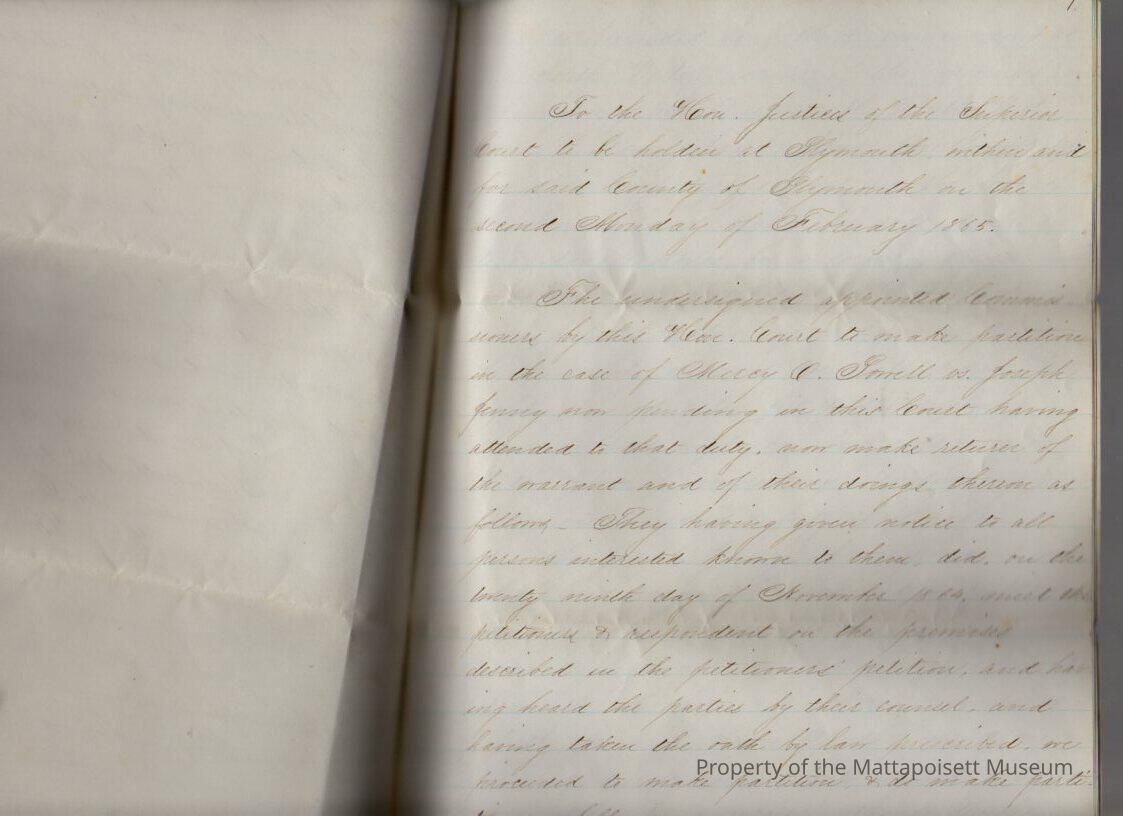 1.
To the Hon. Justices of the Superior
Court to be holden at Plymouth within and
for said County of Plymouth on the
second Monday of February 1865.
The undersigned appointed Commis
sioners by this Hon. Court to make partition
in the case of Mercy O. vs. Joseph
Jenny now pending in this Court having
attended to that duty, now make return of
the warrant and of their doings thereon as
follows – They having given notice to all
persons interested known to them, did, on the
twenty ninth day of November 1864, meet the
petitioners & respondent on the premises
described in the petitioners' petition, and hav
ing heard the parties by their counsel, and
having taken the oath by law prescribed, we
proceeded to make partition, & do make parti-
Property of the Mattapoisett Museum